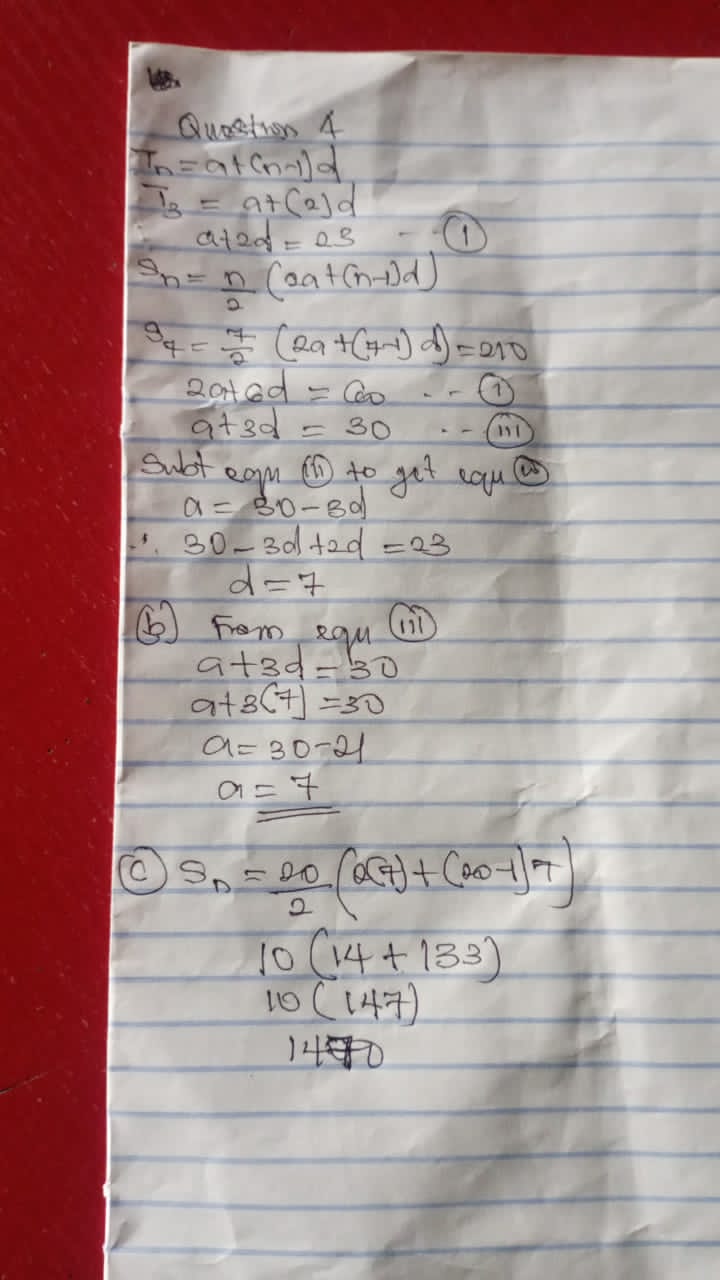 Question 4
Tn = a+(n-1)d
T3 = a+(2)d
∴ a+2d = 23 -- (1)
Sn = n/2 (2a+(n-1)d)
S7 = 7/2 (2a+(7-1)d) = 210
2a+6d = 60 -- (1)
a+3d = 30 -- (iii)
Subt equ (iii) to get equ
a = 30-3d
∴ 30-3d+2d = 23
d = 7
(b) From equ (iii)
a+3d = 30
a+3(7) = 30
a = 30-21
a = 7
(c) Sn = 20/2 (2(7)+(20-1)7)
10(14+133)
10(147)
1470